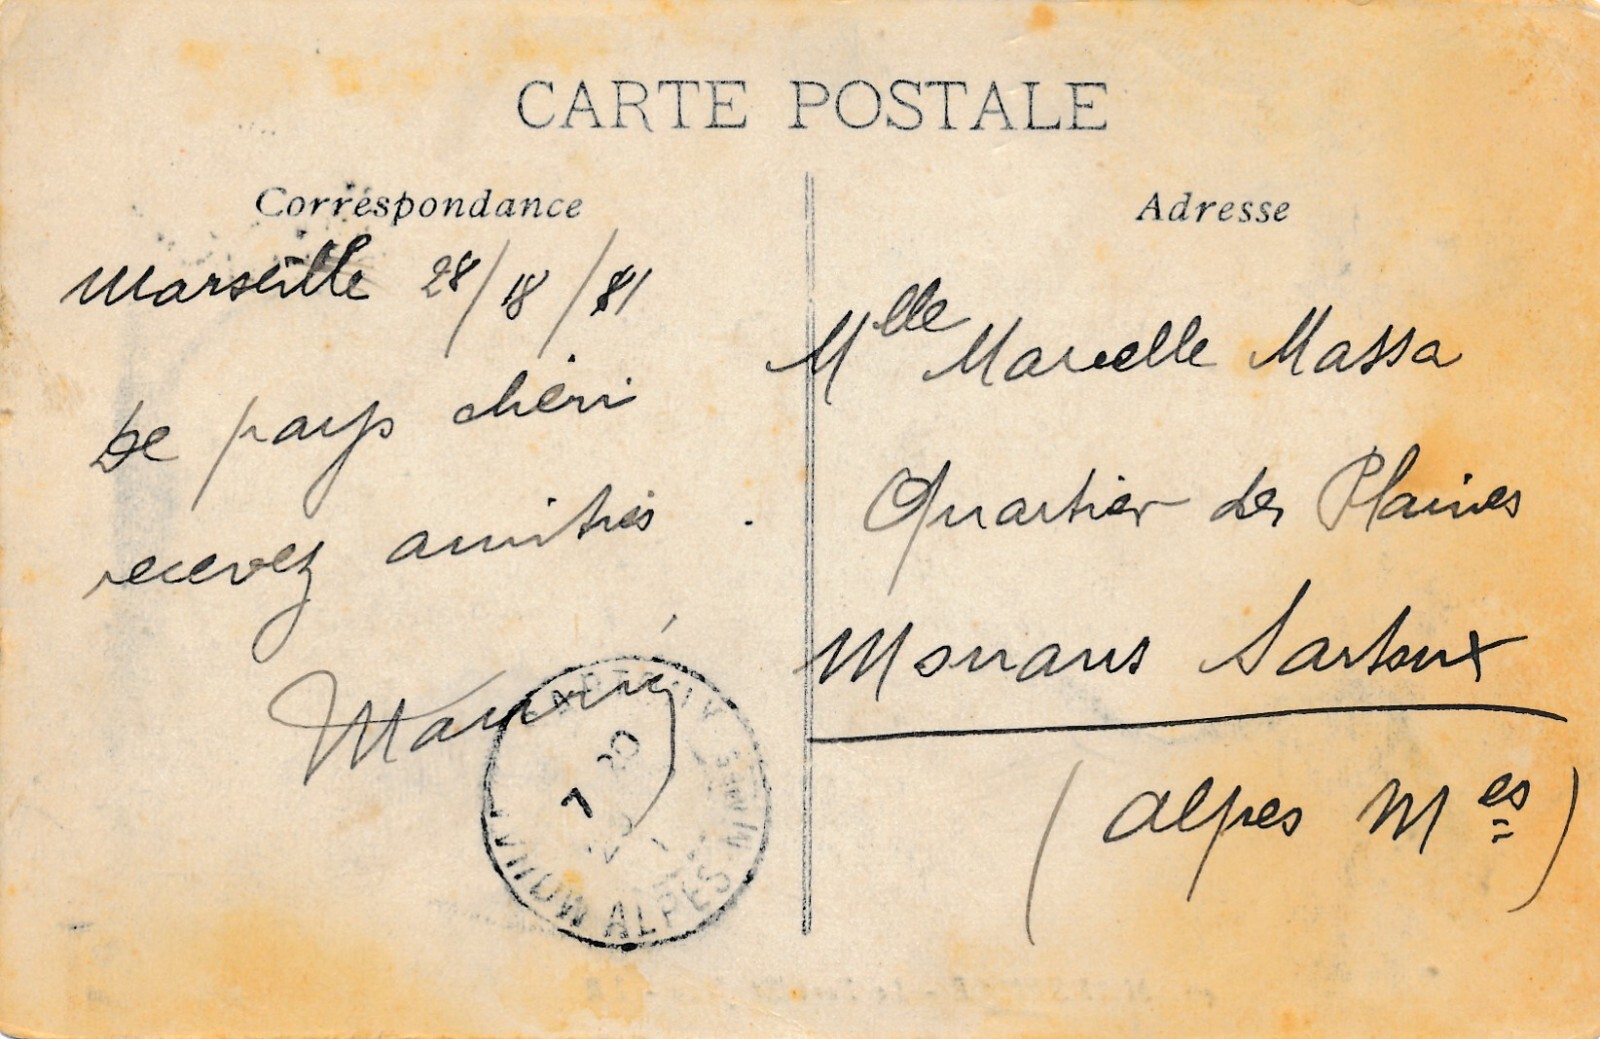 CARTE POSTALE
Correspondance
Adresse
Marseille 28/18/81
De pays chéri
recevez amitiés.
Mlle Marcelle Massa
Quartier des Plaines
Mouans Sartoux
(Alpes Mes)
MOUANS
ALPES-M
7 20